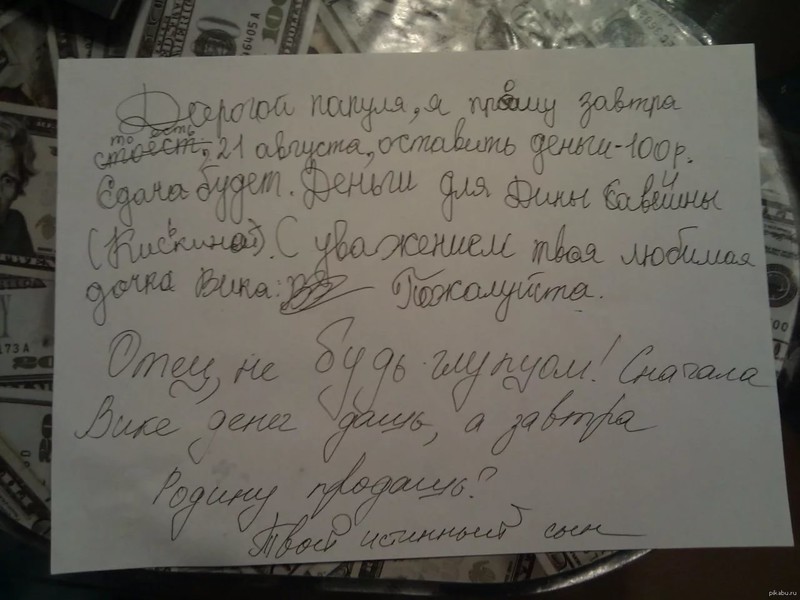 Дорогой папуля, я прошу завтра
то есть, 21 августа, оставить деньги-100р.
Сдача будет. Деньги для Дины Савейины
(Киськиной). С уважением твоя любимая
дочка Вика: Пожалуйста.
Отец, не будь глупцом! Сначала
Вике денег дашь, а завтра
Родину продашь?
Твой истинный сын
pikabu.ru